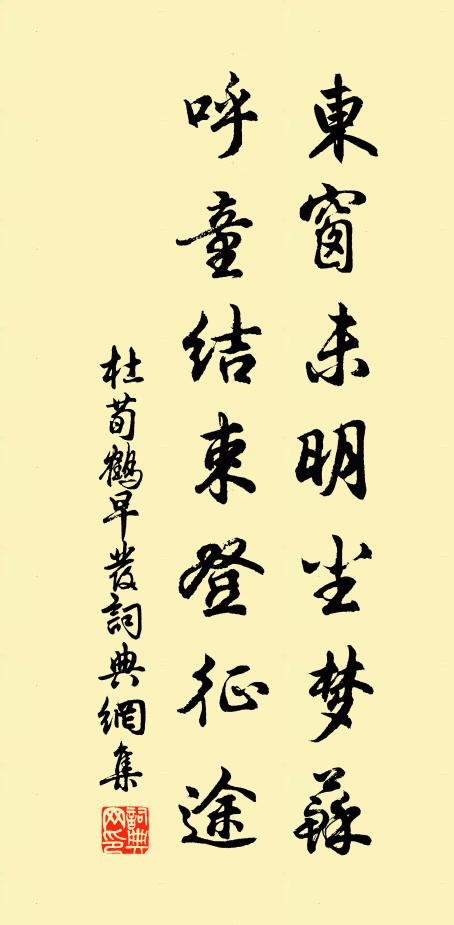 東窗未明尘梦蘇
呼童结束登征途
杜荀鶴早發詞典網集
詞典网印